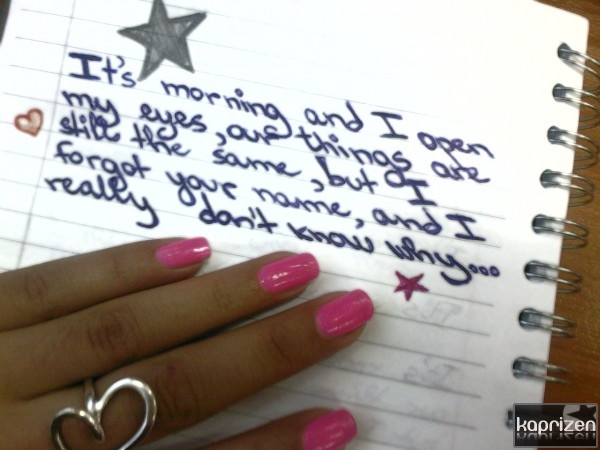 It's morning and I open
my eyes, our things are
still the same, but I
forgot your name, and I
really don't know why...
kaprizen